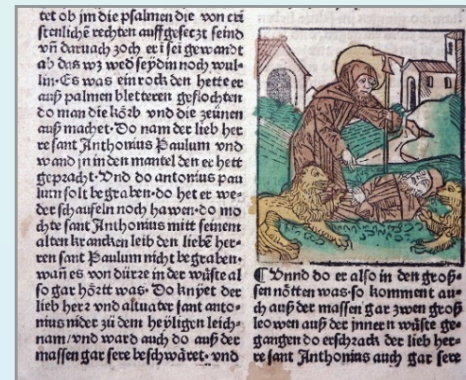 tet ob jm die psalmen die von cri
stenliche rechten auffgesetzt seind
vn̄ darnach zoch er ī sei gewandt
ab das wz wed seydin noch wul-
lin·Es was ein rock den hette er
auß palmen bletteren geflochten
do man die koͤrb vnd die zeünen
auß machet·Do nam der lieb her
re sant Anthonius Paulum vnd
wand jn in den mantel den er hett
gepracht·Vnd do antonius pau
lum solt begraben·do het er we-
der schaufeln noch hawen·do mo
chte sant Anthonius mitt seinem
alten krancken leib den liebē her-
ren sant Paulum nicht begraben·
wañ es von dürre in der wuͤste al
so gar hoͤrtt was·Do knyet der
lieb herr vnd altuater sant anto-
nius nider zů dem heyligen leich-
nam/vnd ward auch do auß der
massen gar sere beschwaͤret·vnd
¶ Vnnd do er also in den groſ-
sen noͤtten was·so komment au-
ch auß der massen gar zwen groß
leowen auß der innern wuͤste ge-
gangen do erschrack der lieb her-
re sant Anthonius auch gar sere